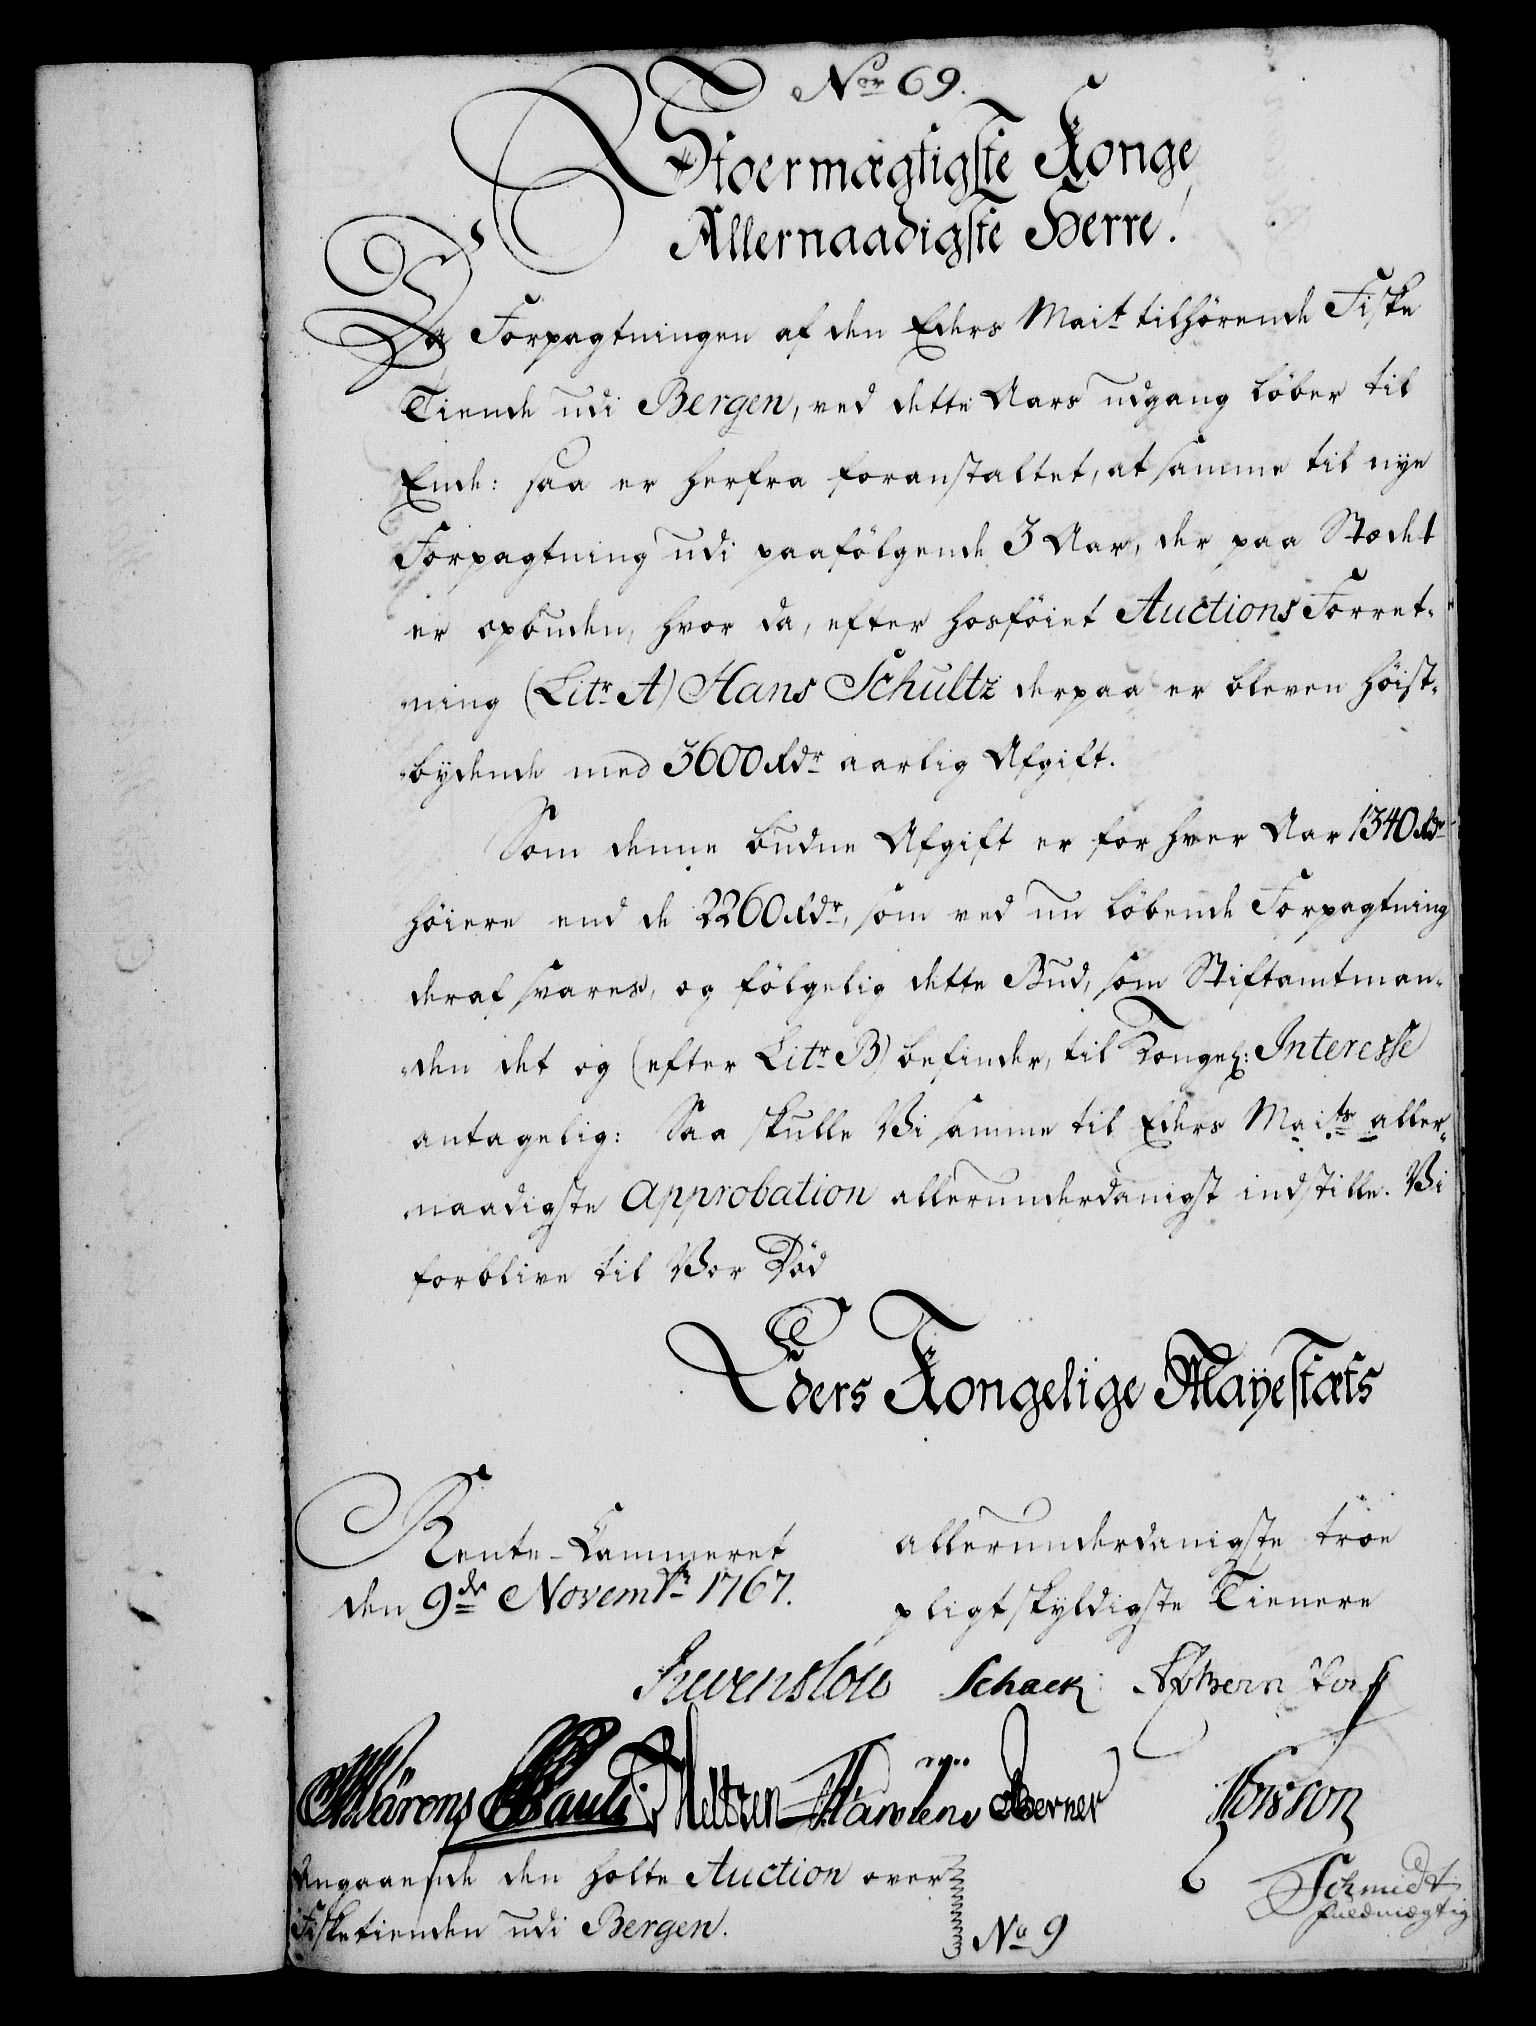 Nor 69.
Stoermægtigste Konge
Allernaadigste Herre!
Da Forpagtningen af den Eders Mait tilhörende Fiske
Tiende udi Bergen, ved dette Aars udgang löber til
Ende: saa er herfra foranstaltet, at samme til nye
Forpagtning udi paafölgende 3 Aar, der paa Stædet
er opbuden, hvor da, efter hosföiet Auctions Forret-
ning (Litr A) Hans Schultz derpaa er bleven höist-
bydende med 3600 Rdr aarlig Afgift.
Som denne budne Afgift er for hver Aar 1340 Rdr
höiere end de 2260 Rdr, som ved nu löbende Forpagtning
deraf svares, og fölgelig dette Bud, som Stiftamtman-
den det og (efter Litr B) befinder, til Kongel: Interesse
antagelig: Saa skulle Vi samme til Eders Maits aller-
naadigste Approbation allerunderdanigst indstille. Vi
forblive til Vor Död
Eders Kongelige Mayestæts
Rente-Cammeret
den 9de Novembr 1767.
allerunderdanigste troe
pligtskyldigste Tienere
Schack
Pauli Berner
Angaaende den holte Auction over
Fisketienden udi Bergen.
No 9
Schmidt
fuldmægtig